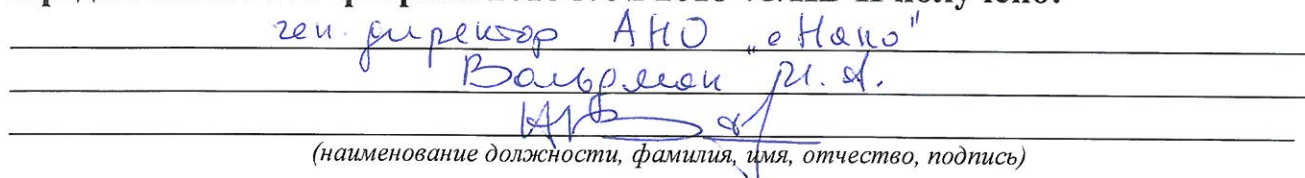 получено:
ген. директор АНО „еНано"
Вольфман И. А.
(наименование должности, фамилия, имя, отчество, подпись)